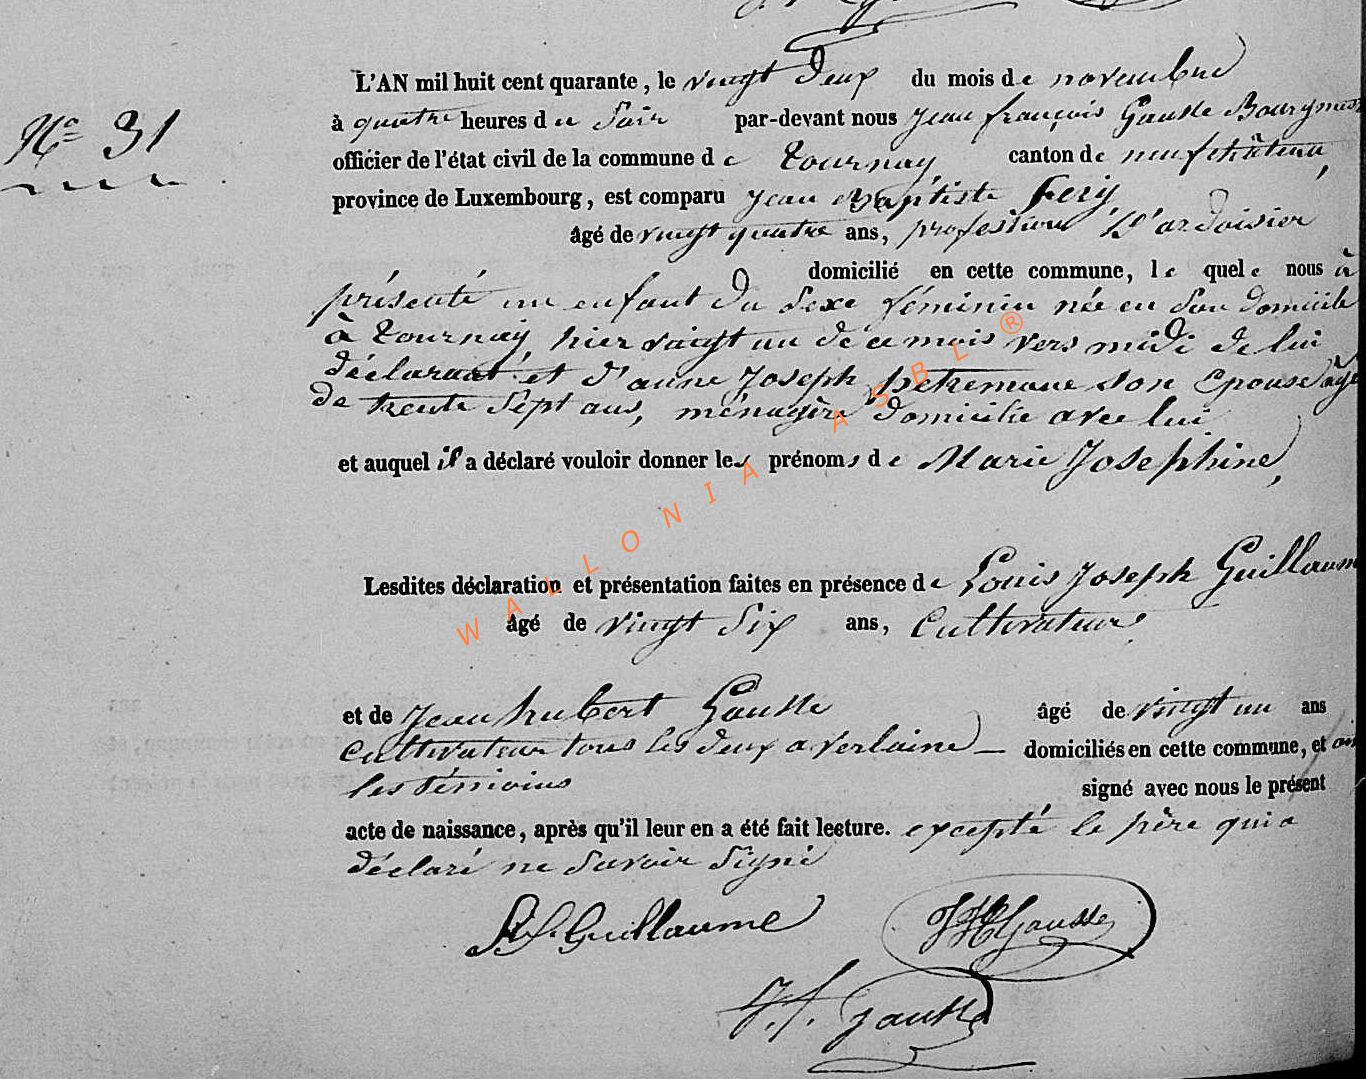 N.º 31
L'AN mil huit cent quarante, le vingt deux du mois de novembre
à quatre heures du Soir par-devant nous Jean françois Gausse Bourgmest
officier de l'état civil de la commune de tournay canton de neufchâteau,
province de Luxembourg, est comparu Jean Baptiste Fery
âgé de vingt quatre ans, profession d'ardoisier
domicilié en cette commune, le quele nous à
présenté un enfant du sexe féminin née en son domicile
à tournay hier vingt un de ce mois vers midi de lui
déclarant et d'anne Joseph petremane son Epouse âgé
de trente Sept ans, ménagère domicilié avec lui
et auquel il a déclaré vouloir donner les prénoms de Marie Josephine,
Lesdites déclaration et présentation faites en présence de Louis Joseph Guillaum
âgé de vingt Six ans, Cultivateur,
et de Jean hubert Gausse âgé de vingt un ans
Cultivateur tous les deux a verlaine domiciliés en cette commune, et ont
les témoins signé avec nous le présent
acte de naissance, après qu'il leur en a été fait lecture. excepté le père qui a
déclaré ne Savoir Signé
Guillaume JHGausse
J. f. Gausse
WALLONIA ASBL ®